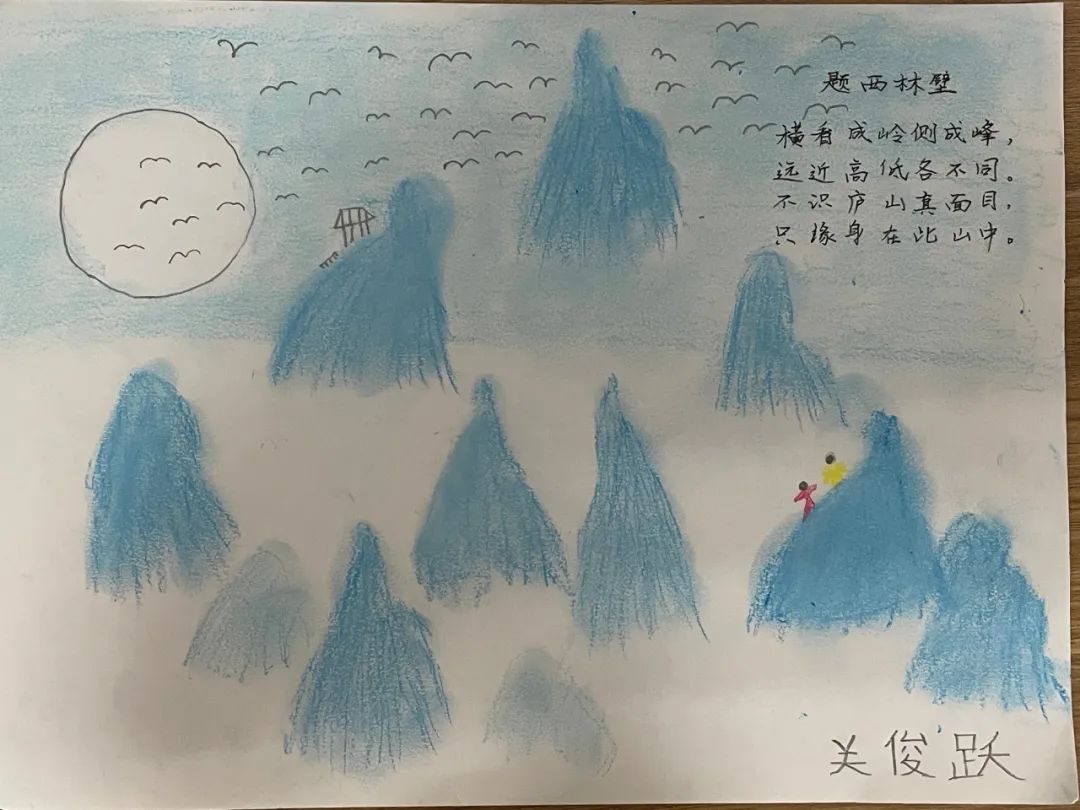 题西林壁
横看成岭侧成峰，
远近高低各不同。
不识庐山真面目，
只缘身在此山中。
关俊跃